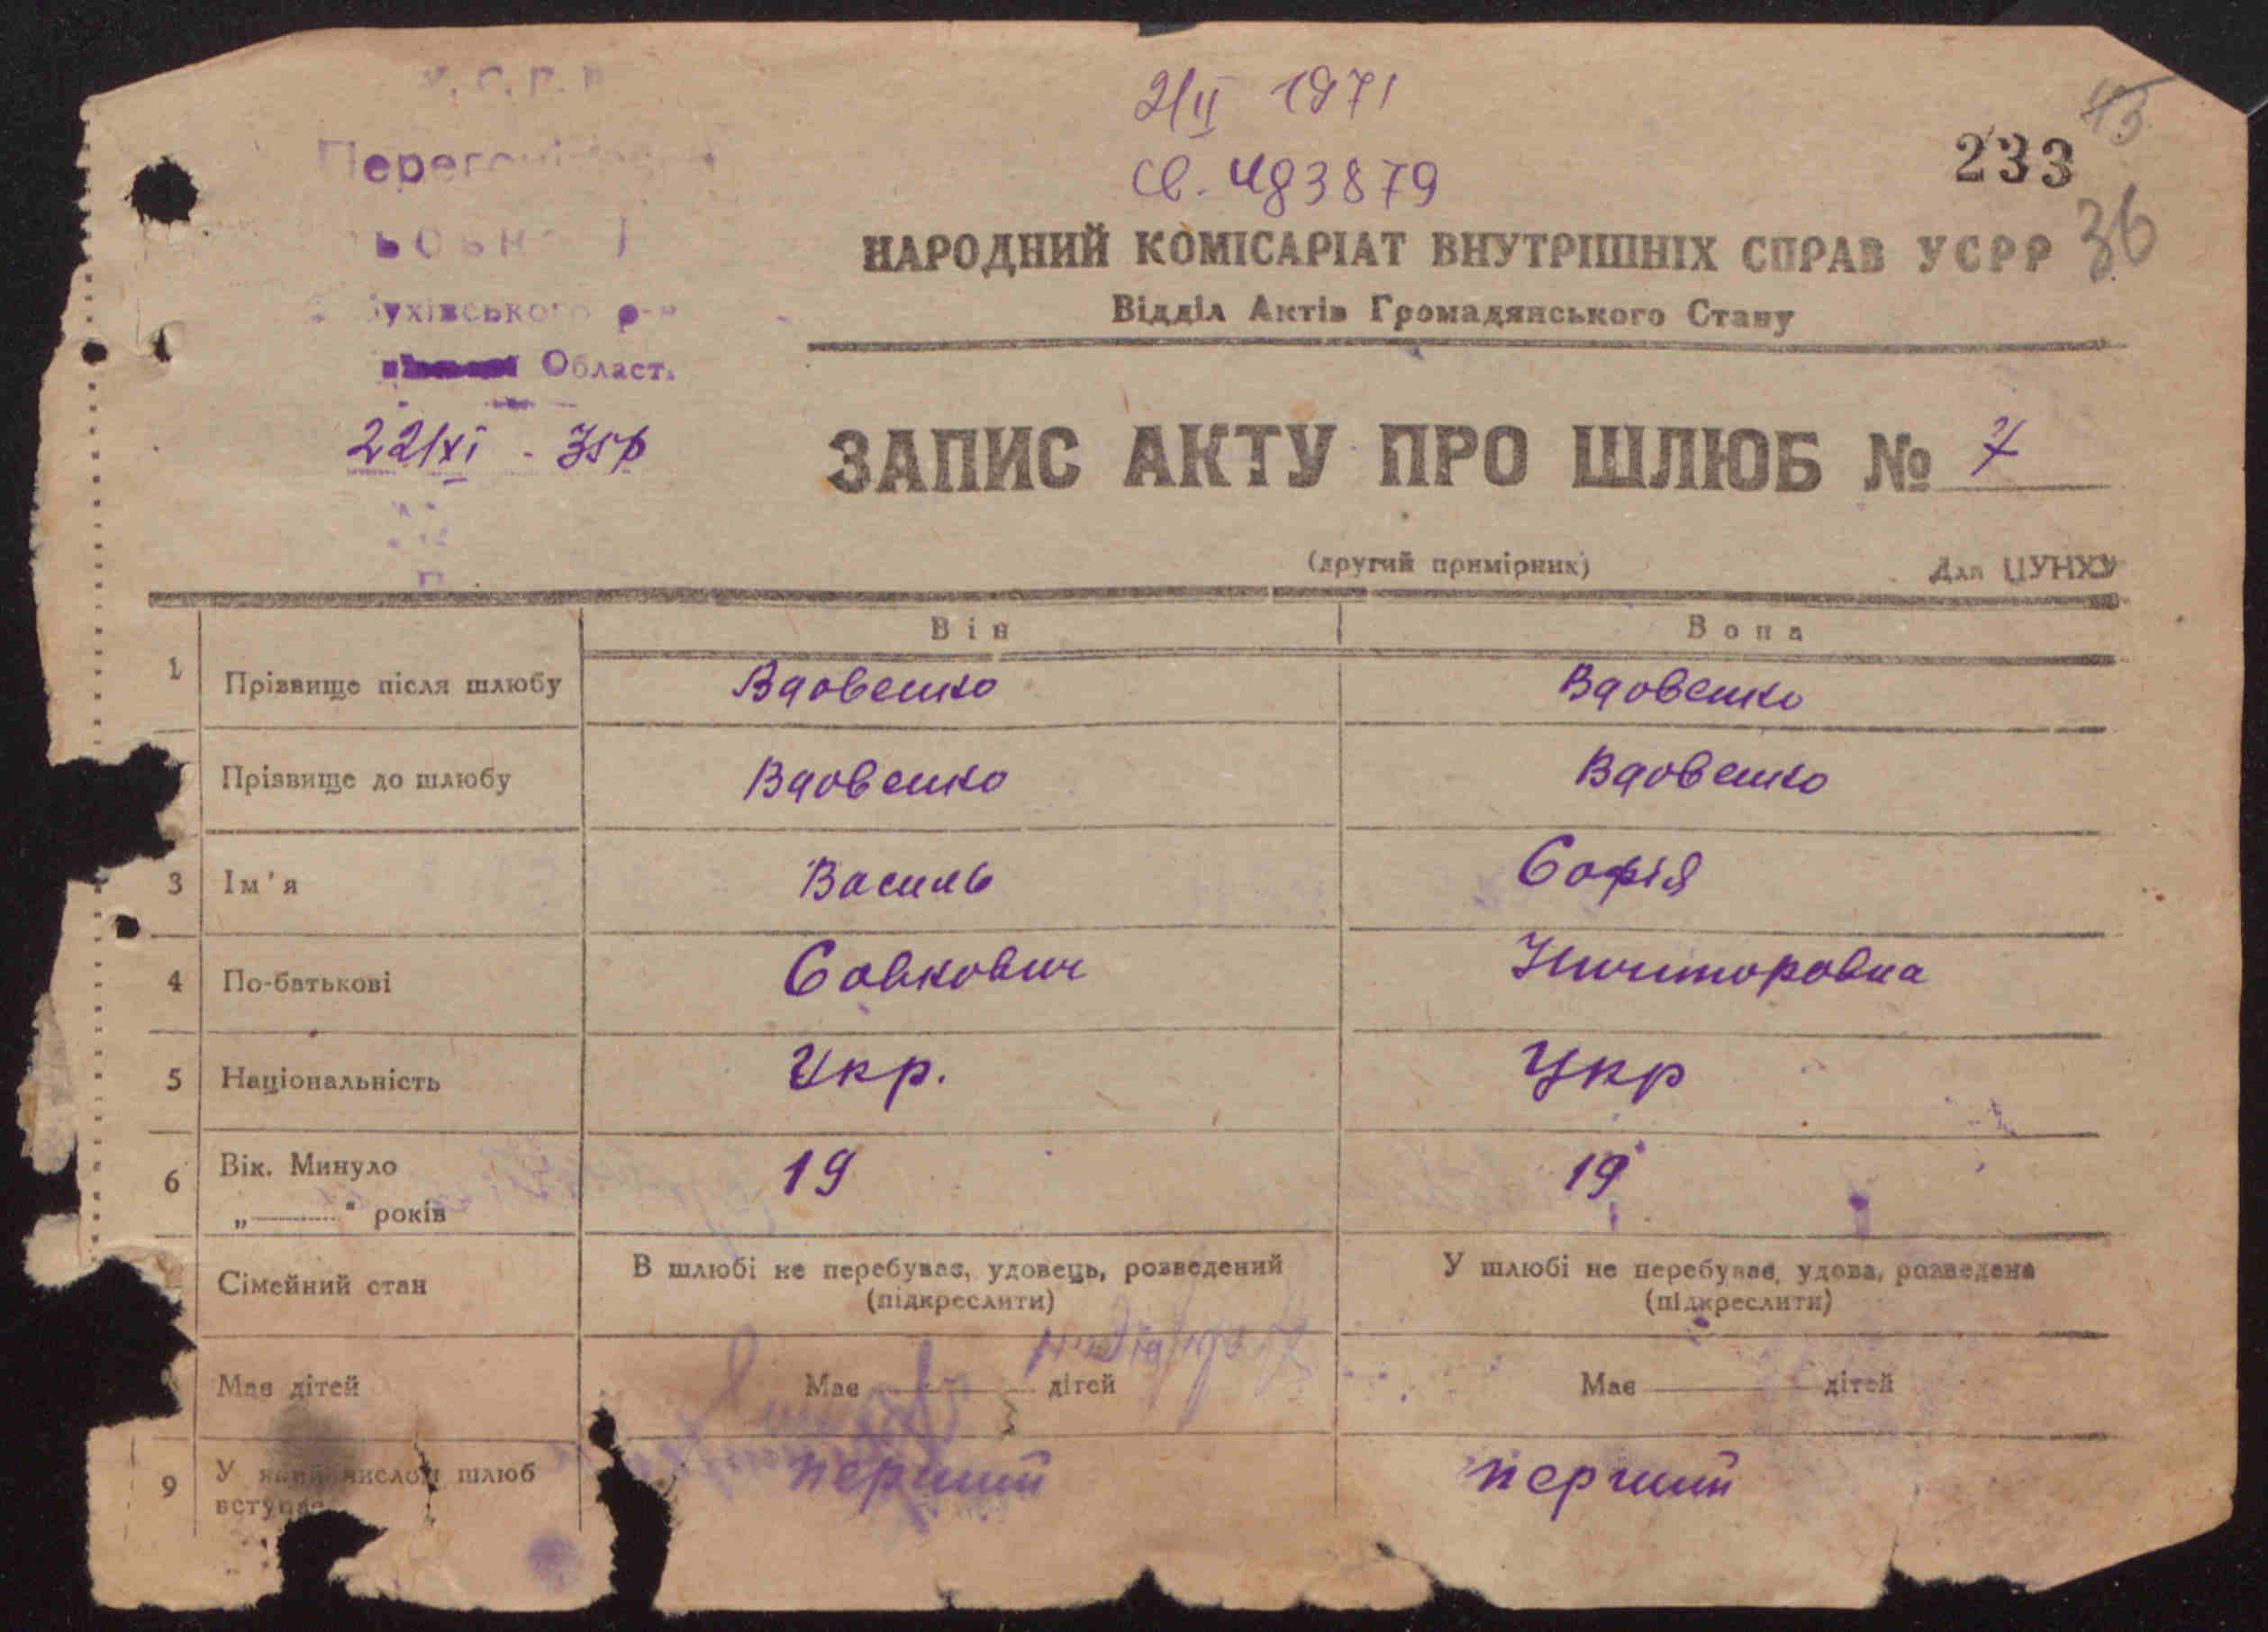 У.С.Р.Р
2/ІІ 1971
св. 483879
233
13
36
НАРОДНИЙ КОМІСАРІАТ ВНУТРІШНІХ СПРАВ УСРР
Відділ Актів Громадянського Стану
Област.
22/хі - 35р
ЗАПИС АКТУ ПРО ШЛЮБ № 7
(другий примірник) Для ЦУНХУ
Він Вона
1 Прізвище після шлюбу Вдовенко Вдовенко
Прізвище до шлюбу Вдовенко Вдовенко
3 Ім'я Василь Софія
4 По-батькові Савкович Ничипоровна
5 Національність Укр. Укр
6 Вік. Минуло 19 19
„ " років
Сімейний стан В шлюбі не перебуває, удовець, розведений У шлюбі не перебуває, удова, розведена
(підкреслити) (підкреслити)
Має дітей Має дітей Має дітей
9 У який числом шлюб перший перший
вступає